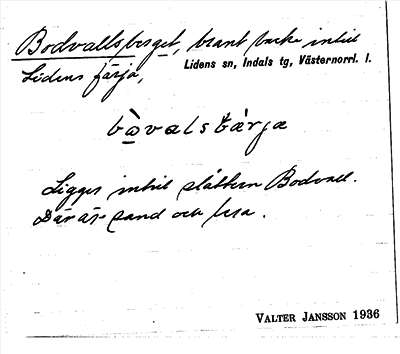 Bodvallsberget, brant backe intill
Lidens sn, Indals tg, Västernorrl. l.
Lidens färja,
bò̱valsbárjæ
Ligger intill slåttern Bodvall.
Där är sand och lera.
VALTER JANSSON 1936